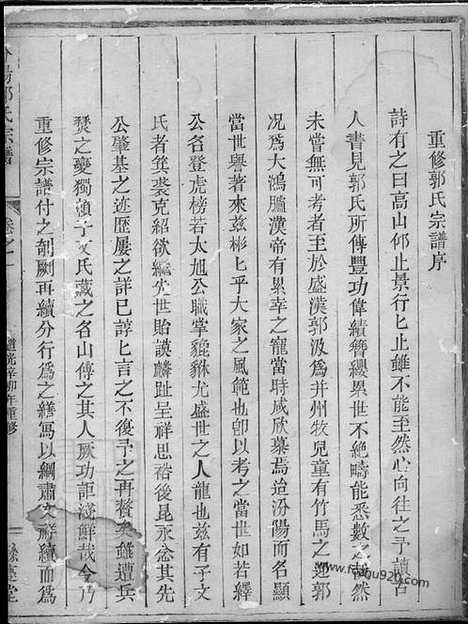 重修郭氏宗譜序
詩有之曰高山仰止景行匕止雖不能至然心向往之予讀古
人書見郭氏所傳豐功偉績簪纓累世不絕疇能悉數之然
未嘗無可考者至於盛漢郭汲爲并州牧兒童有竹馬之迎郭
况爲大鴻臚漢帝有累幸之寵當時咸欣慕焉迨汾陽而名顯
當世譽著來茲彬匕乎大家之風範也卽以考之當世如若繹
公名登虎榜若太旭公職掌貔貅尤盛世之人龍也茲有子文
氏者箕裘克紹欲編先世貽謨麟趾呈祥思裕後昆永念其先
公肇基之迹歷屢之詳已諄匕言之不復予之再贅矣雖遭兵
燹之變獨賴子文氏藏之名山傳之其人厥功詎淺鮮哉今乃
重修宗譜付之剞劂再續分行爲之繕寫以綱肅文辭續而爲
郭氏宗譜
卷之一
道光辛卯年重修